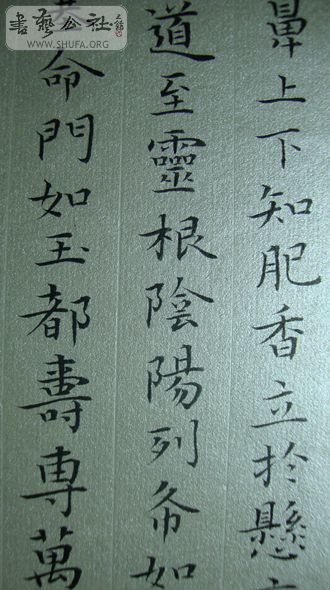 書藝公社
WWW.SHUFA.ORG
鼻上下知肥香立於懸
道至靈根陰陽列布如
命門如玉都壽專萬